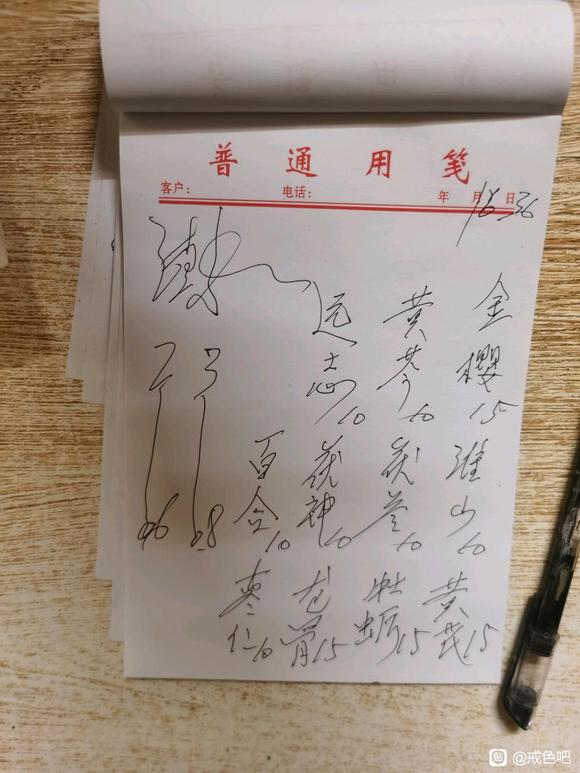 普通用笺
客户： 电话： 年 月 日
金樱15
淮山10
黄芪15
黄芩10
茯苓10
牡蛎15
远志10
茯神10
龙骨15
百合10
枣仁10
贴 @戒色吧